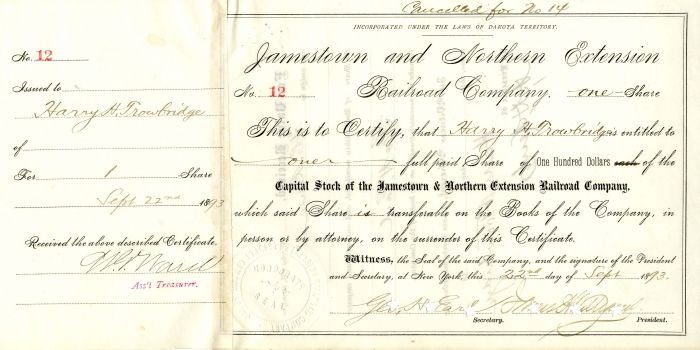 No. 12
Issued to
Harry H. Trowbridge
of
For 1 Share
Sept 22nd 1893
Received the above described Certificate.
Ass't Treasurer.
Cancelled for No 14
INCORPORATED UNDER THE LAWS OF DAKOTA TERRITORY.
Jamestown and Northern Extension
No. 12 Railroad Company, -one- Share
This is to Certify, that Harry H. Trowbridge is entitled to
one full paid Share of One Hundred Dollars each of the
Capital Stock of the Jamestown & Northern Extension Railroad Company,
which said Share is transferable on the Books of the Company, in
person or by attorney, on the surrender of this Certificate.
Witness, the Seal of the said Company, and the signature of the President
and Secretary, at New York, this 22nd day of Sept 1893.
Geo. H. Earl
Secretary. President.